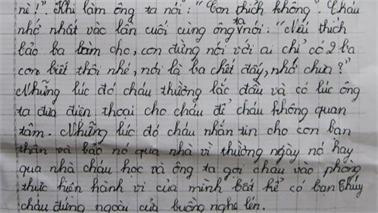 nì!". Khi làm ông ta nói: "Con thích không" Cháu
nhớ nhất vào lần cuối cùng ông ta nói: "Nếu thích
bảo ba làm cho, con đừng nói với ai chỉ có 2 ba
con biết thôi nhé, nói là ba chết đấy, nhớ chưa?"
Những lúc đó cháu thường lắc đầu và có lúc ông
ta đưa điện thoại cho cháu để cháu không quan
tâm. Những lúc đó cháu nhắn tin cho con bạn
thân và bảo nó qua nhà vì thường ngày nó hay
qua nhà cháu học và ông ta gọi cháu vào phòng
thực hiện hành vi của mình kể cả có bạn Thúy
cháu đứng ngoài cửa buồng nghe lén.